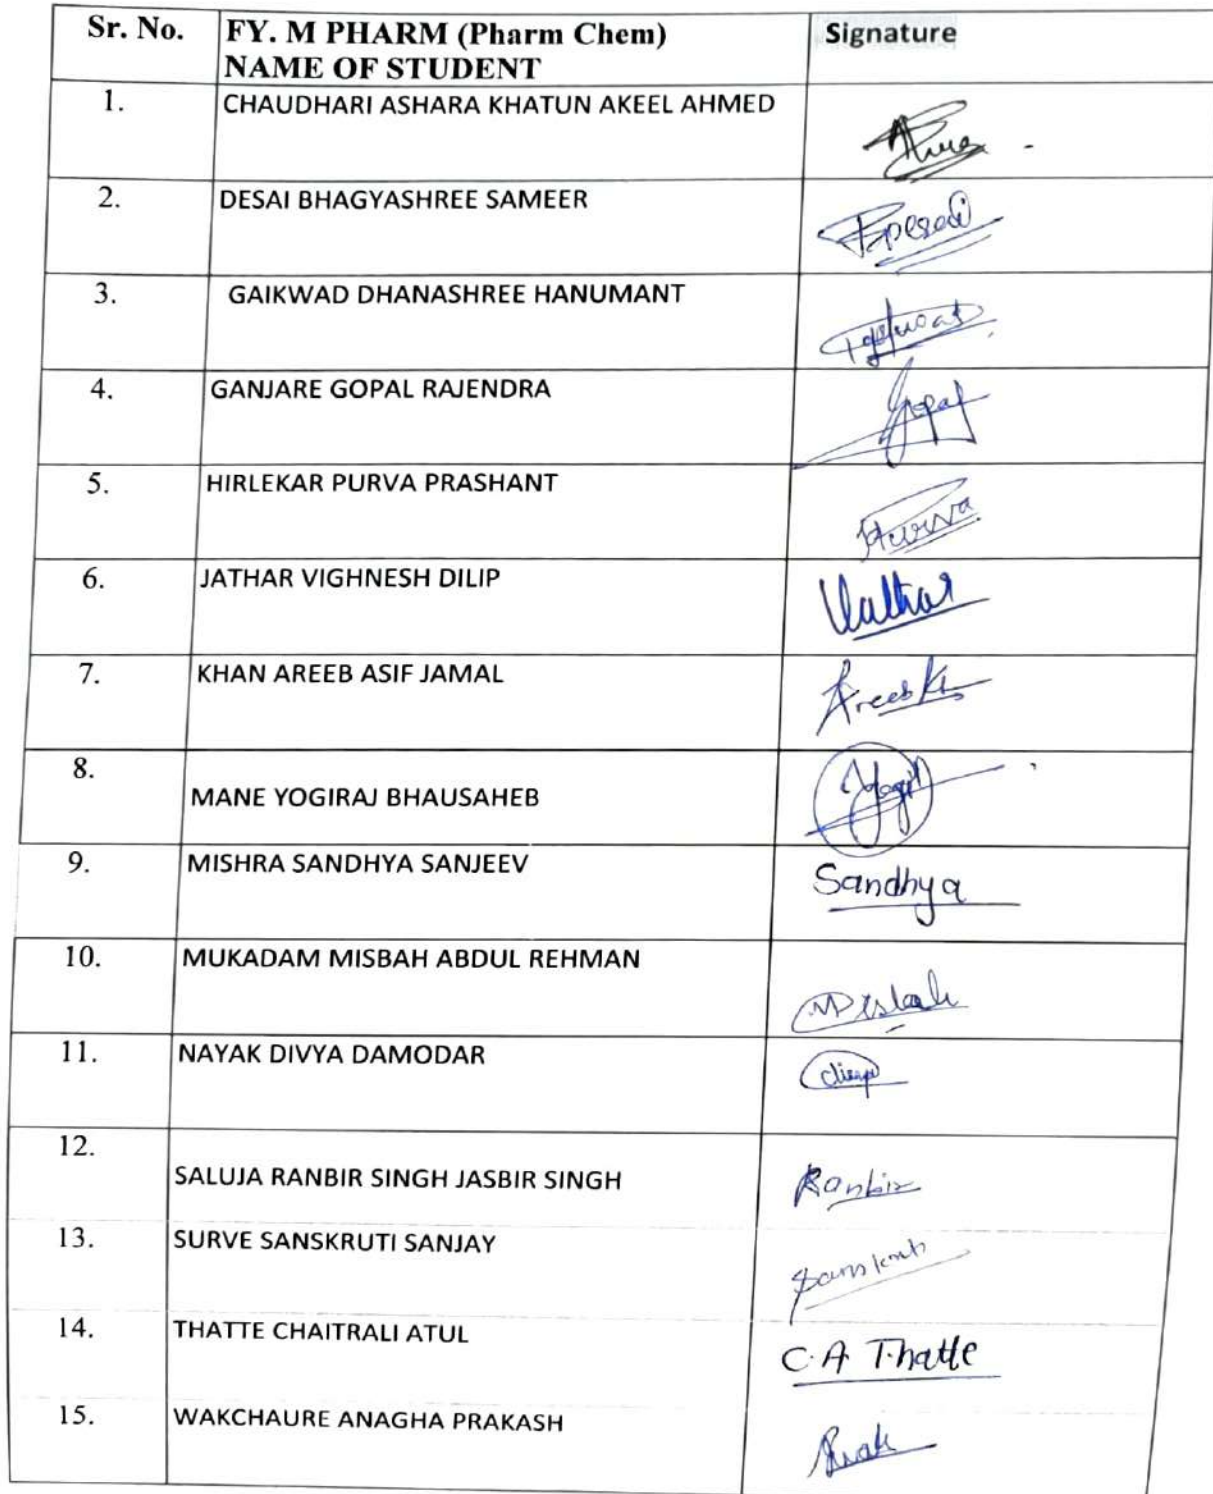 Sr. No. FY. M PHARM (Pharm Chem) Signature
NAME OF STUDENT
1. CHAUDHARI ASHARA KHATUN AKEEL AHMED
2. DESAI BHAGYASHREE SAMEER
3. GAIKWAD DHANASHREE HANUMANT
4. GANJARE GOPAL RAJENDRA Gopal
5. HIRLEKAR PURVA PRASHANT Purva
6. JATHAR VIGHNESH DILIP
7. KHAN AREEB ASIF JAMAL
8.
MANE YOGIRAJ BHAUSAHEB
9. MISHRA SANDHYA SANJEEV Sandhya
10. MUKADAM MISBAH ABDUL REHMAN Misbah
11. NAYAK DIVYA DAMODAR
12.
SALUJA RANBIR SINGH JASBIR SINGH Ranbir
13. SURVE SANSKRUTI SANJAY
14. THATTE CHAITRALI ATUL C.A Thatte
15. WAKCHAURE ANAGHA PRAKASH